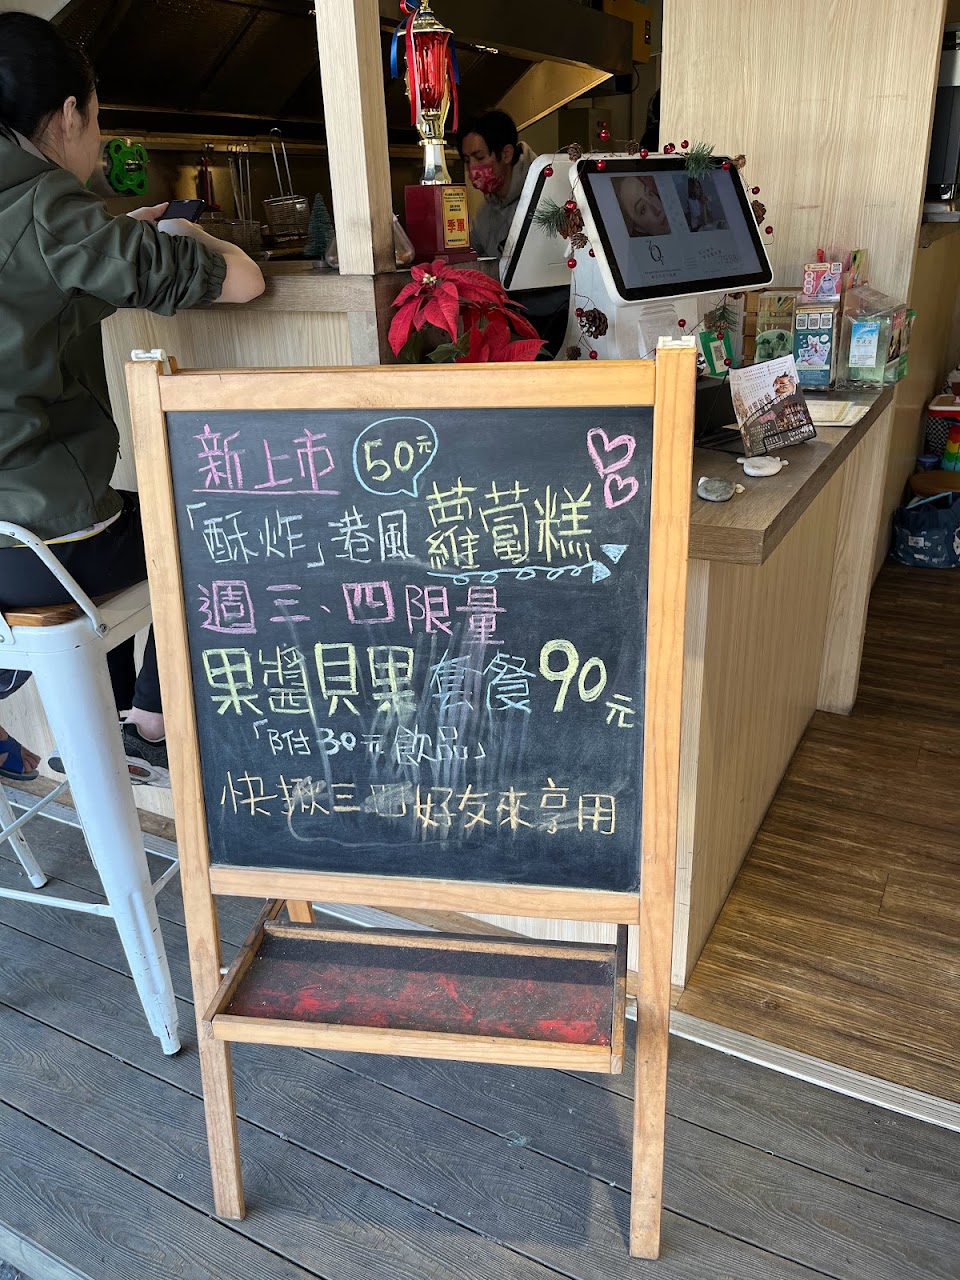 新上市 50元
「酥炸」港風蘿蔔糕
週三、四限量
果醬貝果套餐90元
「附30元飲品」
快揪三四好友來享用
季軍